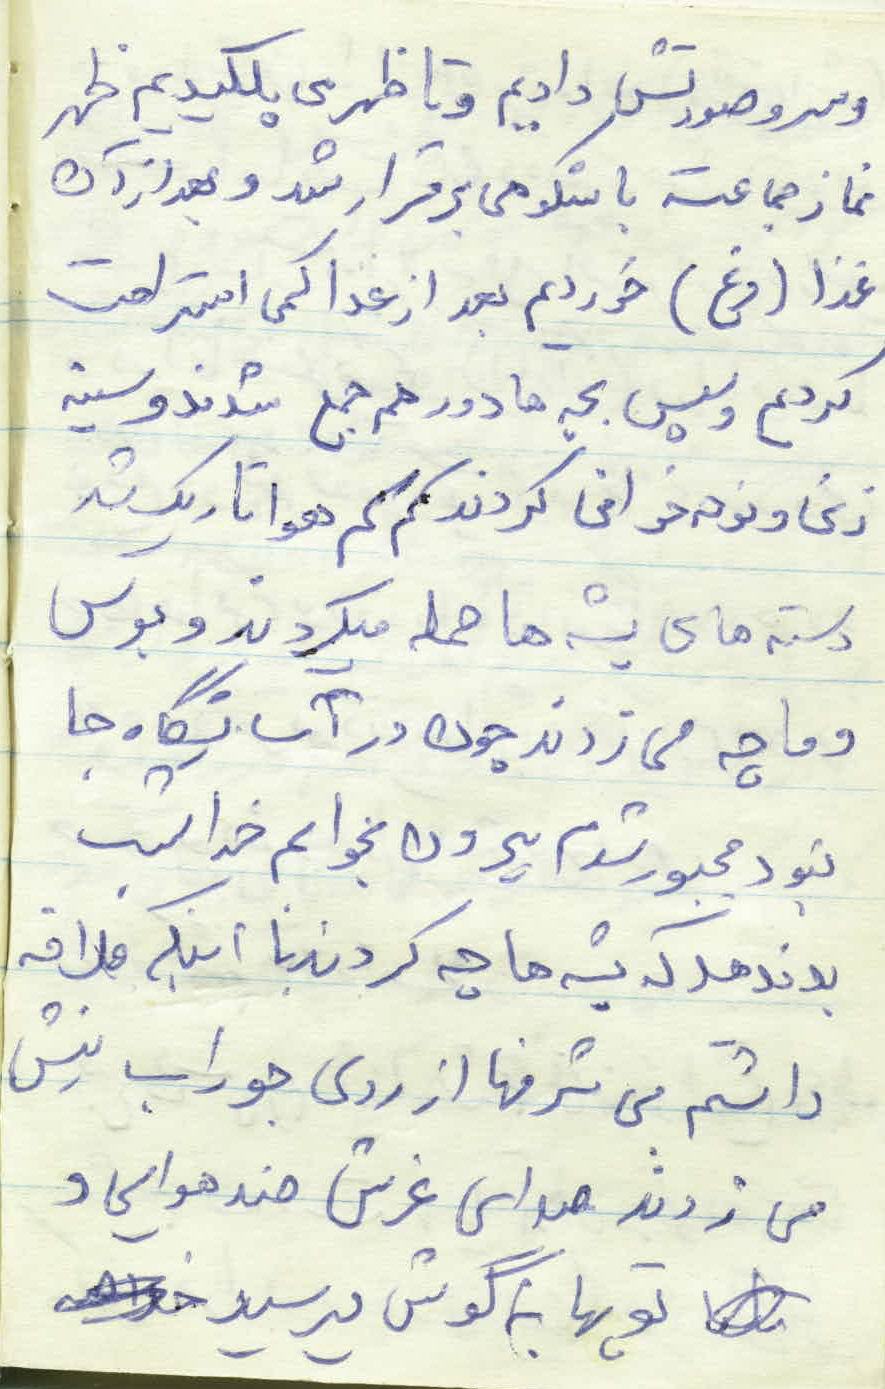 وسر و صورتش دادیم و تا ظهر می پلکیدیم ظهر
نماز جماعت با شکوهی برقرار شد و بعد از آن
غذا (مرغ) خوردیم بعد از غذا کمی استراحت
کردیم و سپس بچه ها دور هم جمع شدند و سینه
زنی و نوحه خوانی کردند کم کم هوا تاریک شد
دسته های پشه ها حمله میکردند و بوس
و ماچ می زدند چون در آسایشگاه جا
نبود مجبور شدم بیرون بخوابم خدا شب
بد ندهد که پشه ها چه کردند با اینکه ملافه
داشتم بی شرفها از روی جوراب نیش
می زدند صدای غرش ضد هوایی و
توپها به گوش میرسید